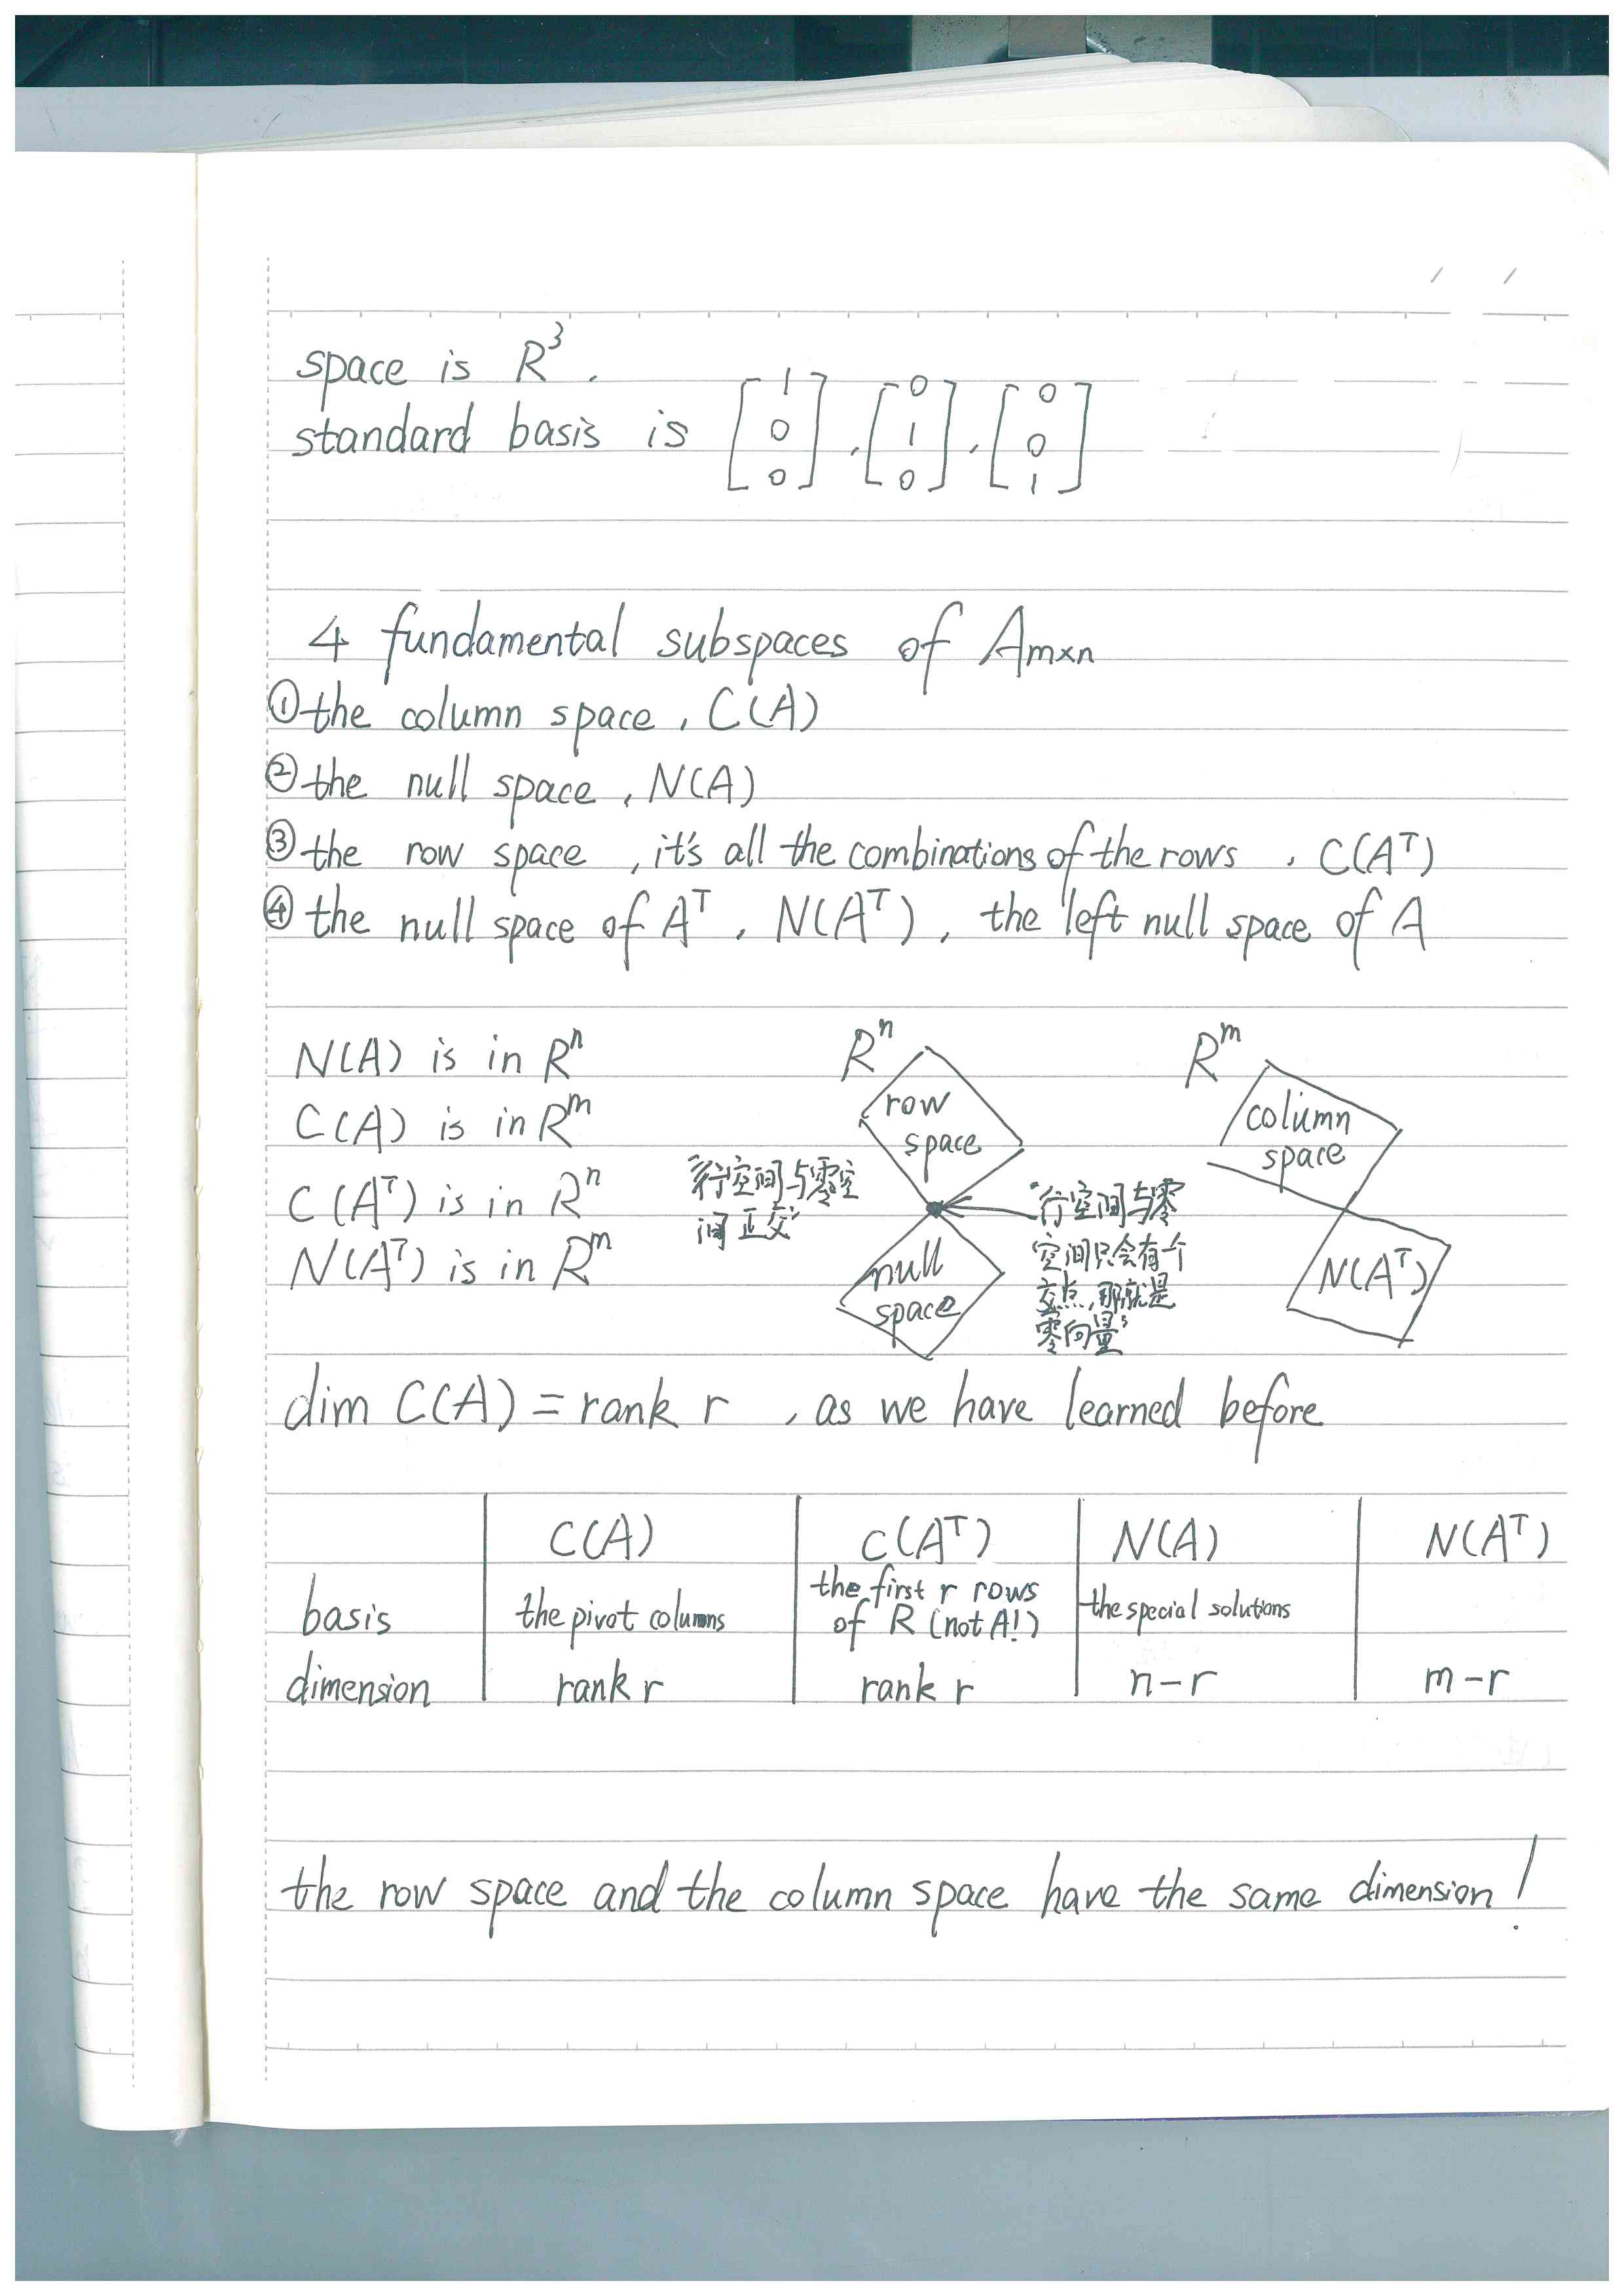 space is R³.
standard basis is [1 0 0], [0 1 0], [0 0 1]
4 fundamental subspaces of Am×n
①the column space, C(A)
②the null space, N(A)
③the row space, it's all the combinations of the rows, C(Aᵀ)
④the null space of Aᵀ, N(Aᵀ), the left null space of A
N(A) is in Rⁿ
C(A) is in Rᵐ
C(Aᵀ) is in Rⁿ
N(Aᵀ) is in Rᵐ
Rⁿ
row
space
null
space
"行空间与零空
间正交"
"行空间与零
空间只会有一个
交点,那就是
零向量"
Rᵐ
column
space
N(Aᵀ)
dim C(A) = rank r , as we have learned before
C(A) C(Aᵀ) N(A) N(Aᵀ)
basis the pivot columns the first r rows of R (not A!) the special solutions
dimension rank r rank r n-r m-r
the row space and the column space have the same dimension!